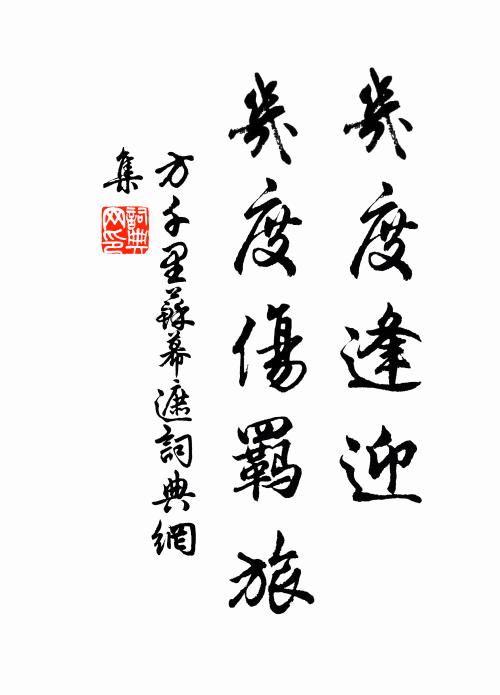 幾度逢迎
幾度傷羈旅
方千里蘇幕遮詞典網
集
詞典
网印